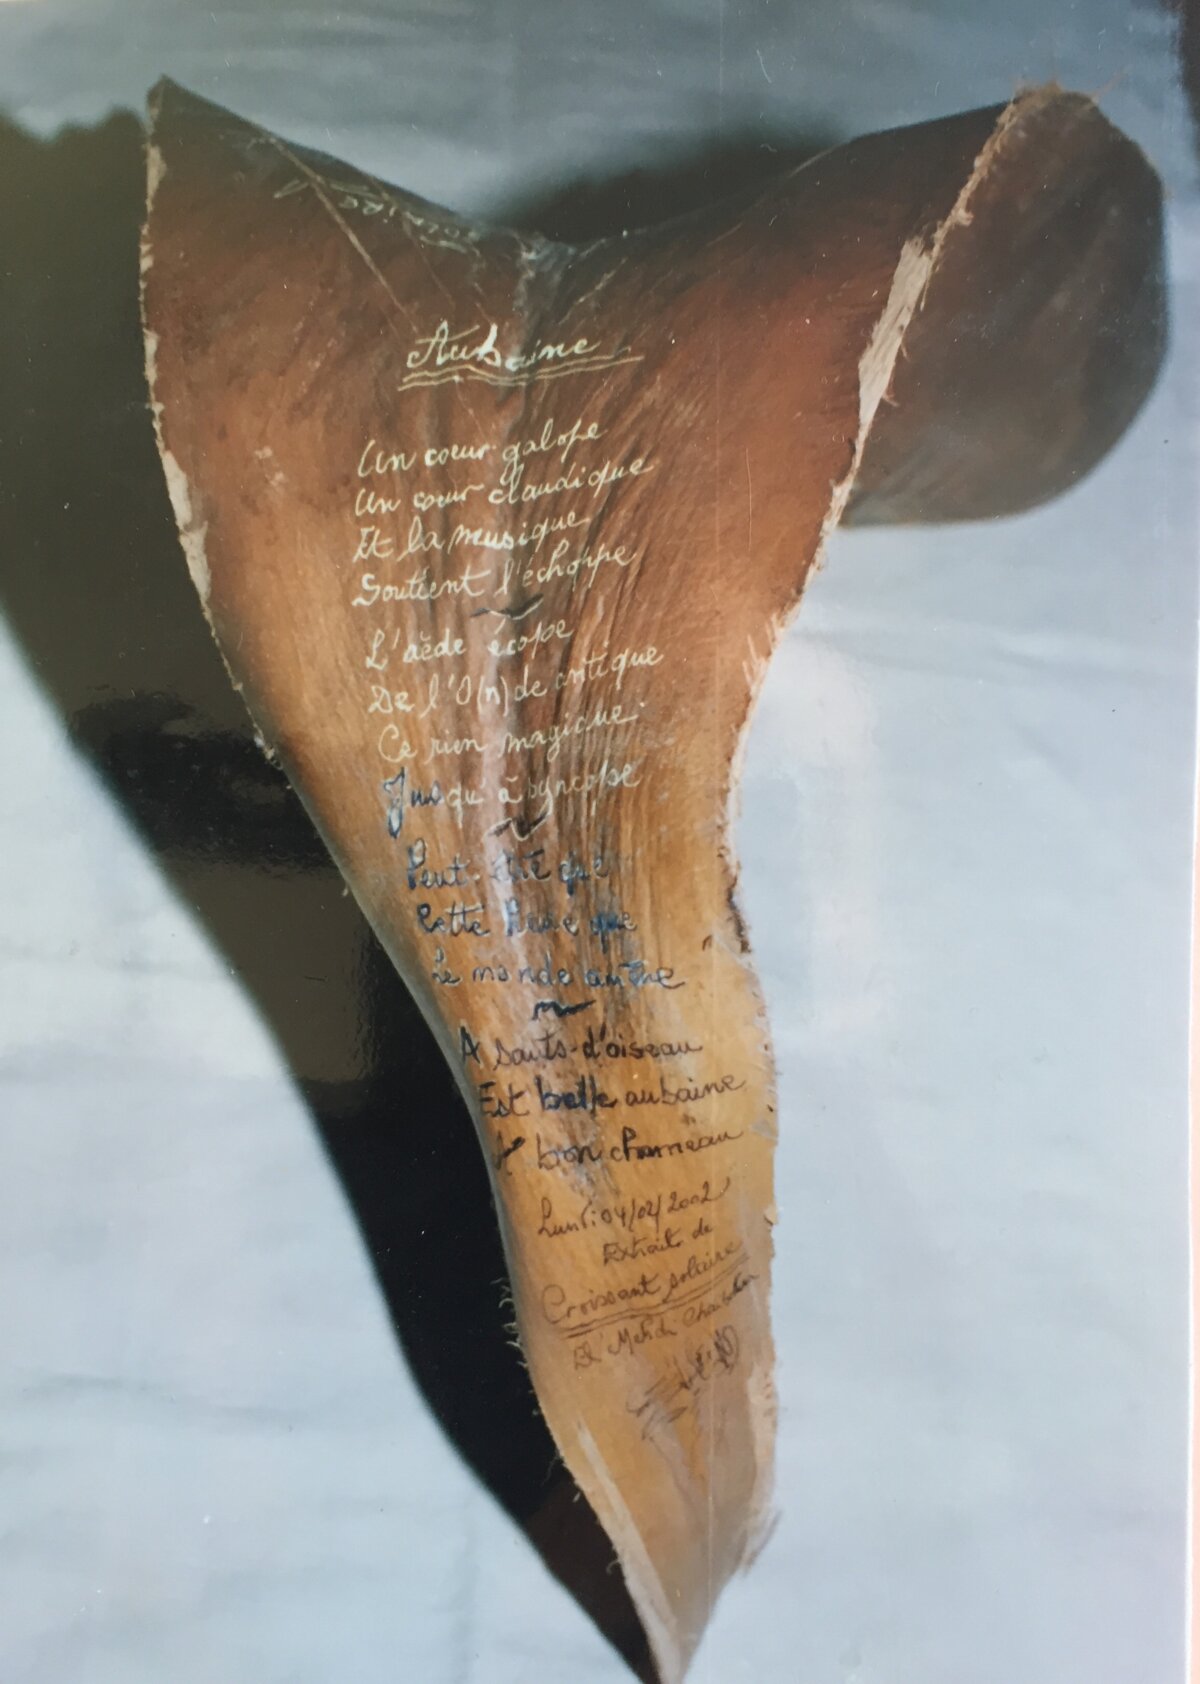 solaire
Aubaine
Un coeur galope
Un coeur claudique
Et la musique
Soutient l'échoppe
L'aède écope
De l'O(n)de antique
Ce rien magique
Jusqu'à syncope
Peut-être que
Cette que
Le monde
A sauts-d'oiseau
Est belle aubaine
A bon chameau
Lundi 04/02/2002
Extrait de
Croissant solaire
El Mehdi